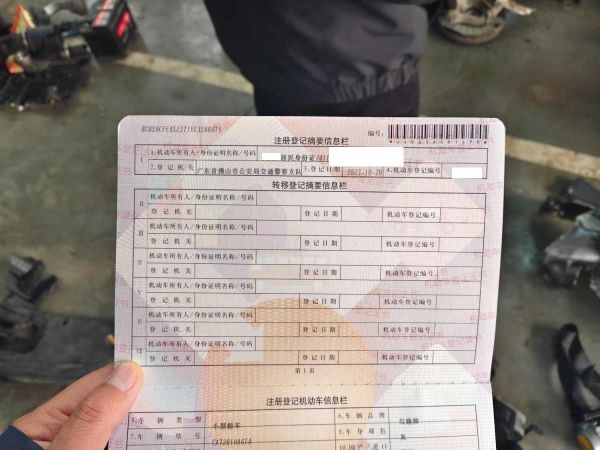 注册登记摘要信息栏
编号:
I 1.机动车所有人/身份证明名称/号码 居民身份证/
2.登记机关 广东省佛山市公安局交通警察支队 3.登记日期 2023-10-20 4.机动车登记编号
转移登记摘要信息栏
II 机动车所有人/身份证明名称/号码
登记机关 登记日期 机动车登记编号
III 机动车所有人/身份证明名称/号码
登记机关 登记日期 机动车登记编号
IV 机动车所有人/身份证明名称/号码
登记机关 登记日期 机动车登记编号
V 机动车所有人/身份证明名称/号码
登记机关 登记日期 机动车登记编号
VI 机动车所有人/身份证明名称/号码
登记机关 登记日期 机动车登记编号
VII 机动车所有人/身份证明名称/号码
登记机关 登记日期 机动车登记编号
第1页
注册登记机动车信息栏
5.车辆类型 小型轿车 6.车辆品牌
7.车辆型号 8.车身颜色 灰
10.国产/进口